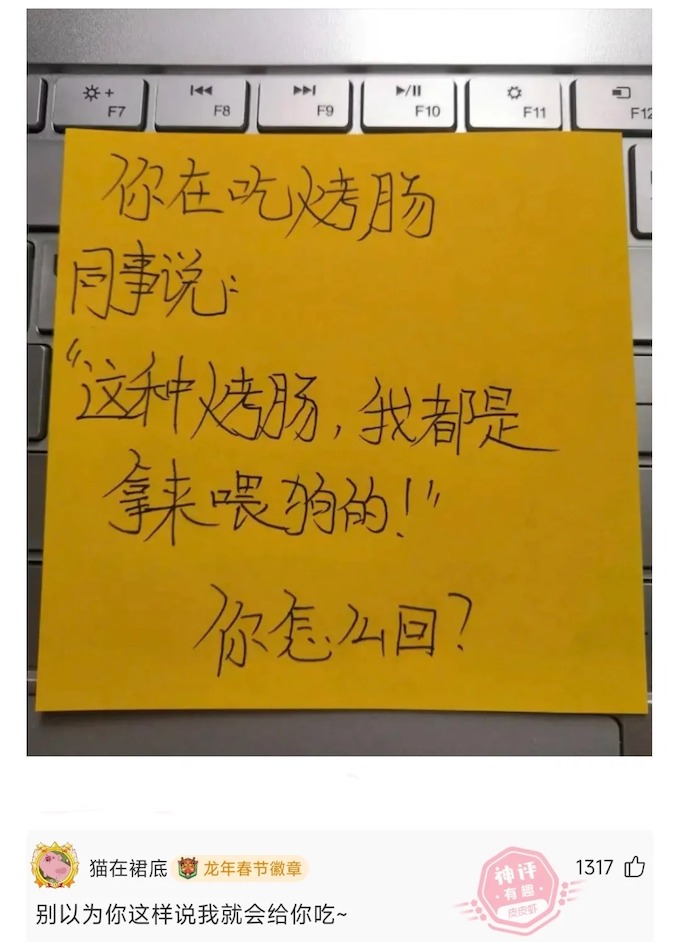 F7
F8
F9
F10
F11
F12
你在吃烤肠
同事说:
“这种烤肠,我都是
拿来喂狗的!”
你怎么回?
猫在裙底
龙年春节徽章
神评
有趣
皮皮虾
1317
别以为你这样说我就会给你吃~